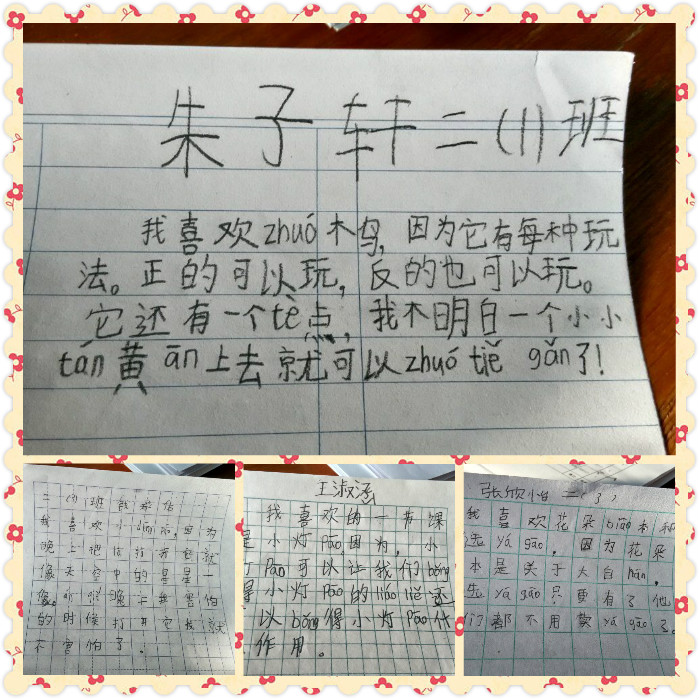 朱子轩二(1)班
我喜欢zhuó木鸟,因为它有每种玩
法。正的可以玩,反的也可以玩。
它还有一个tè点,我不明白一个小小
tán黄àn上去就可以zhuó tiě gǎn了!
二(1)班
我喜欢小 因为
晚上把灯打开它就
像天空中的星星一
像。 晚上我害怕
的时候打开它我就
不害怕了。
王淑涵
我喜欢的一节课
是小灯Pào因为,小
灯Pào可以让我们bāng
是小灯Pào的
以bāng得小灯Pào作
作用。
张欣怡二(3)
我喜欢花朵biāo本和
选yá gāo,因为花朵
本是关于大自hán,
先yá gāo只要有了他
们都不用 yá gāo了。